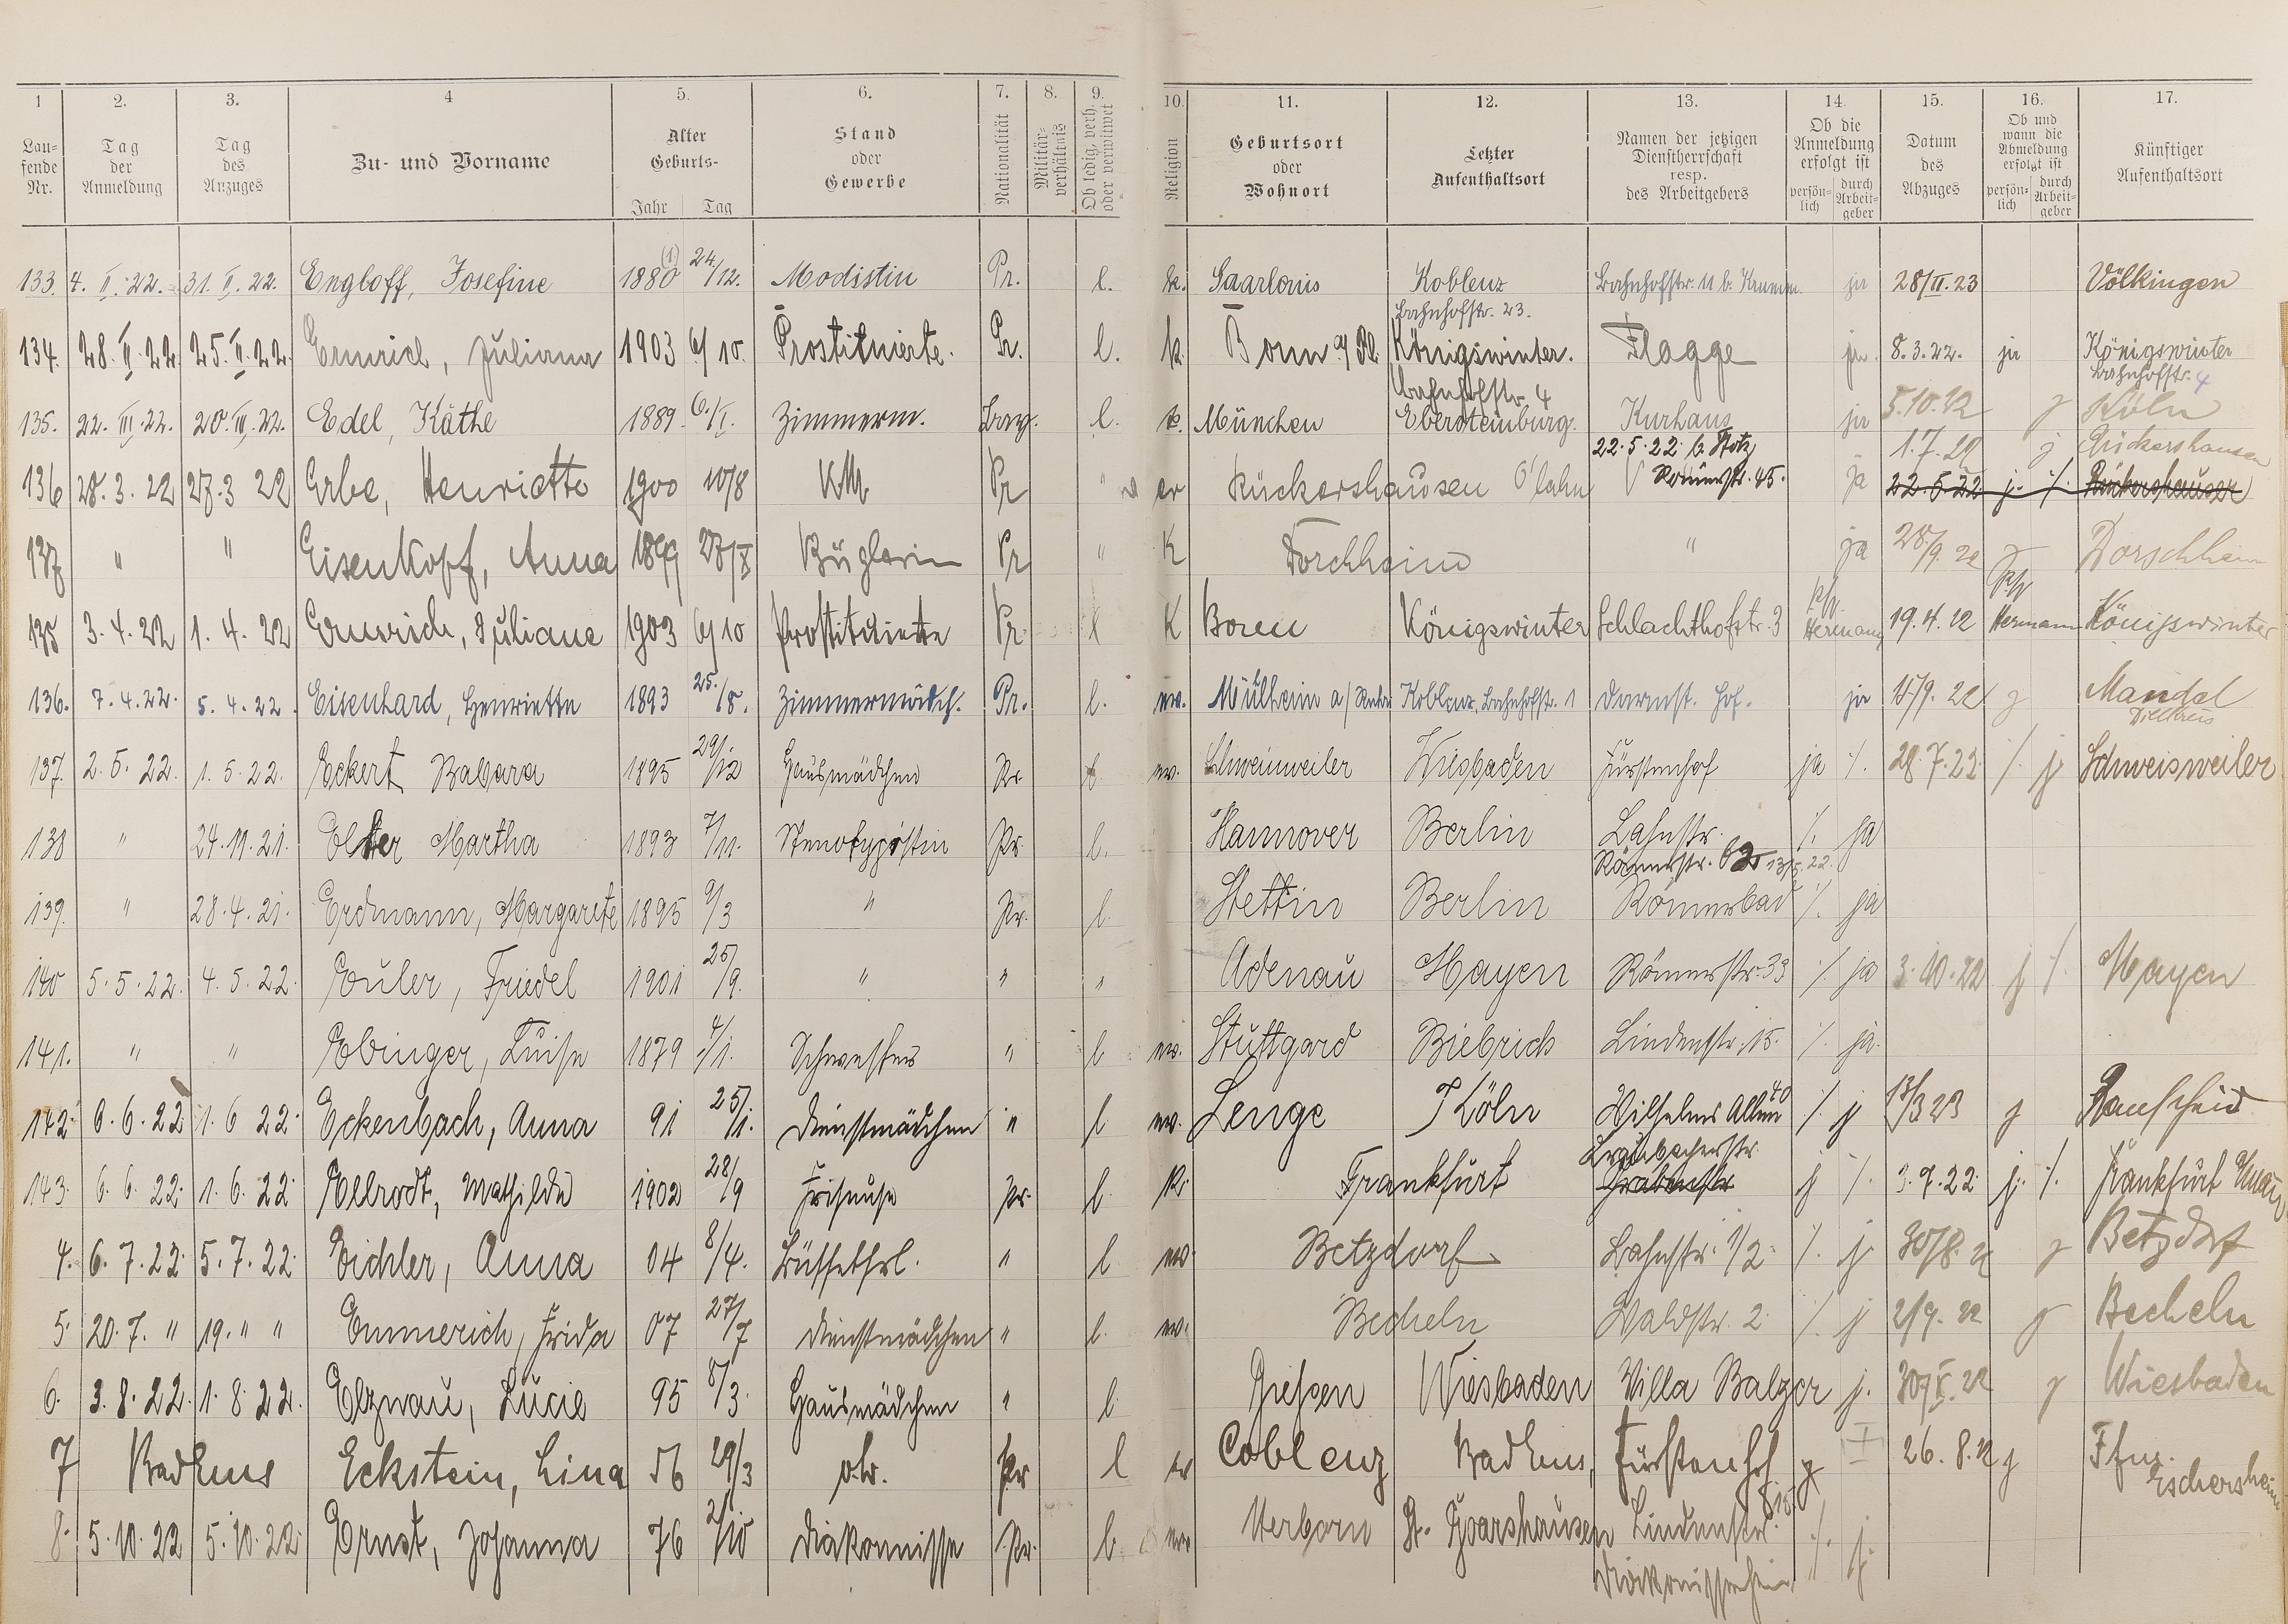 1 2. 3. 4 5. 6. 7. 8. 9. 10. 11. 12. 13. 14. 15. 16. 17.
Laufende Nr. Tag der Anmeldung Tag des Anzuges Zu- und Vorname Alter Geburts- Jahr Tag Stand oder Gewerbe Nationalität Militärverhältnis Ob ledig, verh. oder verwitwet Religion Geburtsort oder Wohnort Letzter Aufenthaltsort Namen der jetzigen Dienstherrschaft resp. des Arbeitgebers Ob die Anmeldung erfolgt ist persönlich durch Arbeitgeber Datum des Abzuges Ob und wann die Abmeldung erfolgt ist persönlich durch Arbeitgeber Künftiger Aufenthaltsort
133. 4. II. 22. 31. II. 22. Engloff, Josefine 1880 (1) 24/12. Modistin Pr. l. k. Saarlouis Koblenz Bahnhofstr. 11 b. ja 28/II. 23 Völkingen
Bahnhofstr. 23.
134. 28. II. 22. 25. II. 22. Emrich, Juliana 1903 6/10. Prostituierte. Pr. l. k. Bonn a/Rh. Königswinter. Flagge ja. 8. 3. 22. ja Königswinter
Bahnhofstr. 4 Bahnhofstr. 4
135. 22. III. 22. 20. III. 22. Edel, Käthe 1889. 6./I. Zimmerm. Bay. l. k. München Ebersteinburg. Kurhaus ja 5.10.22 j Köln
22. 5. 22 b. Stotz 1. 7. 22 j Rückershausen
136 28. 3. 22 27. 3 22 Erbe, Henriette 1900 10/8 KM. Pr " ev Rückershausen Römerstr. 45. ja 22. 5. 22 j. ./. Rückershausen
137 " " Eisenkopf, Anna 1899 27/X Büglerin Pr " K Forchheim " ja 28/9. 22 j Dorschheim
135 3. 4. 22 1. 4. 22 Emrich, Juliane 1903 6/10 Prostituierte Pr l K Bonn Königswinter Schlachthofstr. 3 Hermann 19. 4. 22 Hermann Königswinter
136. 7. 4. 22. 5. 4. 22. Eisenhard, Henriette 1893 25./8. Zimmermädch. Pr. l. ev. Mülheim a/Ruhr Koblenz, Bahnhofstr. 1 Darmst. Hof. ja 15/9. 22 j Mandel
Dillkreis
137. 2. 5. 22. 1. 5. 22. Eckert Babara 1895 29/12 Hausmädchen Pr. l ev. Schweinweiler Wiesbaden Fürstenhof ja ./. 28. 7. 22. ./. j Schweisweiler
138 " 24. 11. 21. Elster Martha 1893 7/11. Stenotypistin Pr. l. Hannover Berlin Lahnstr. ./. ja
Römerstr. 62 13/5. 22.
139. " 28. 4. 21. Erdmann, Margarete 1895 9/3 " Pr. l. Stettin Berlin Römerbad ./. ja
140 5. 5. 22. 4. 5. 22. Euler, Friedel 1901 25/9. " " " Adenau Mayen Römerstr. 33 ./. ja 3. 10. 22 j ./. Mayen
141. " " Ebinger, Luise 1879 4/1. Schwester " l ev. Stuttgard Biebrich Lindenstr. 15. ./. ja.
142. 6. 6. 22 1. 6 22. Eckenbach, Anna 91 25/1. Dienstmädchen " l ev. Lenge Köln Wilhelms Allee 40 ./. j 13/3 23 j
Braubacherstr.
143. 6. 6. 22. 1. 6. 22. Ellrodt, Mathilde 1902 28/9 Friseuse Pr. l. K. Frankfurt Grabenstr. j ./. 3. 9. 22. j. ./. Frankfurt
4. 6. 7. 22. 5. 7. 22. Eichler, Anna 04 8/4. Büffetfrl. " l ev. Betzdorf Lahnstr. 1/2 ./. j 30/8. 22 j Betzdorf
5. 20. 7. " 19. " " Emmerich, Frida 07 27/7 Dienstmädchen " l. ev. Becheln Waldstr. 2 ./. j 2/9. 22 j Becheln
6. 3. 8. 22. 1. 8 22. Elznau, Lucie 95 8/3. Hausmädchen " l. Gießen Wiesbaden Villa Balzer j. 30/X. 22 j Wiesbaden
7 Bad Ems Eckstein, Lina 56 29/3 o.w. Pr l ev Coblenz Bad Ems, Fürstenhof j 26. 8. 22 j Ffm. Eschersheim
8. 5. 10. 22 5. 10. 22 Ernst, Johanna 76 2/10 Diakonnisse Pr. l. ev. Herborn St. Goarshausen Lindenstr. 15 ./. j.